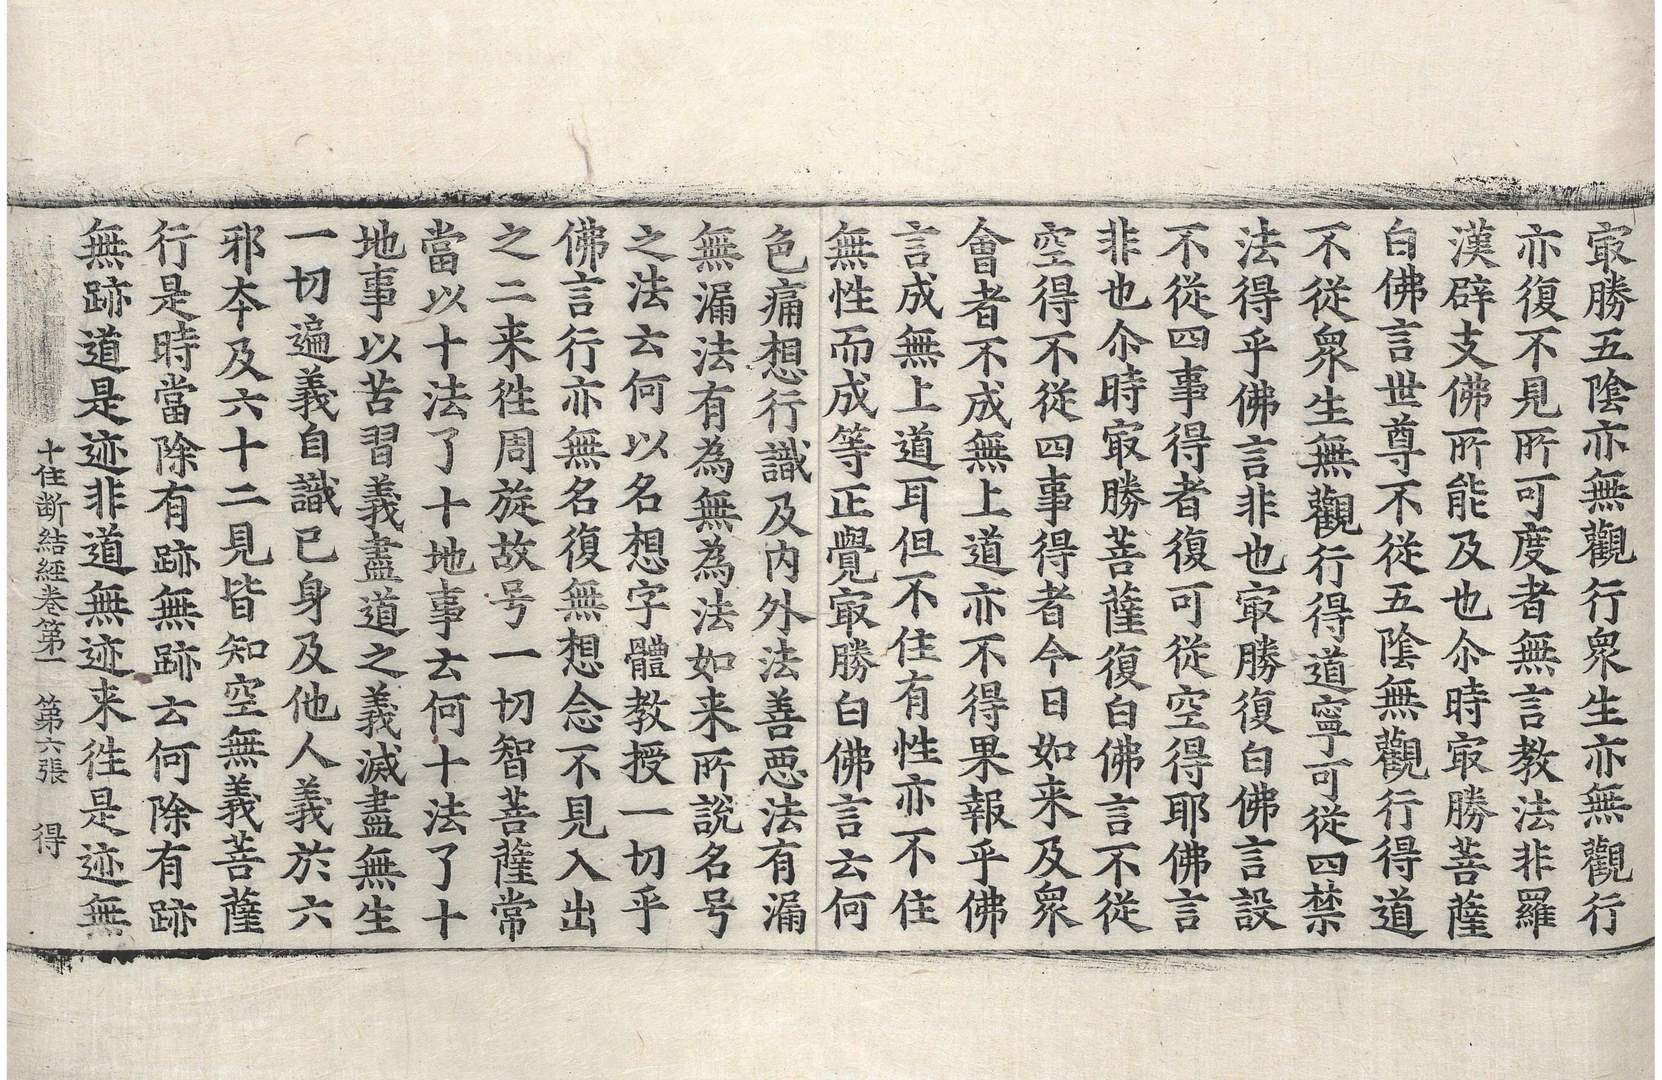 冣勝五陰亦無觀行衆生亦無觀行
亦復不見所可度者無言教法非羅
漢辟支佛所能及也尒時冣勝菩薩
白佛言世尊不從五陰無觀行得道
不從衆生無觀行得道寧可從四禁
法得乎佛言非也冣勝復白佛言設
不從四事得者復可從空得耶佛言
非也尒時冣勝菩薩復白佛言不從
空得不從四事得者今日如来及衆
會者不成無上道亦不得果報乎佛
言成無上道耳但不住有性亦不住
無性而成等正覺冣勝白佛言云何
色痛想行識及内外法善惡法有漏
無漏法有為無為法如来所說名号
之法云何以名想字體教授一切乎
佛言行亦無名復無想念不見入出
之二来徃周旋故号一切智菩薩常
當以十法了十地事云何十法了十
地事以苦習義盡道之義滅盡無生
一切遍義自識己身及他人義於六
邪夲及六十二見皆知空無義菩薩
行是時當除有跡無跡云何除有跡
無跡道是迹非道無迹来徃是迹無
十住断結經卷第一　第六張　得